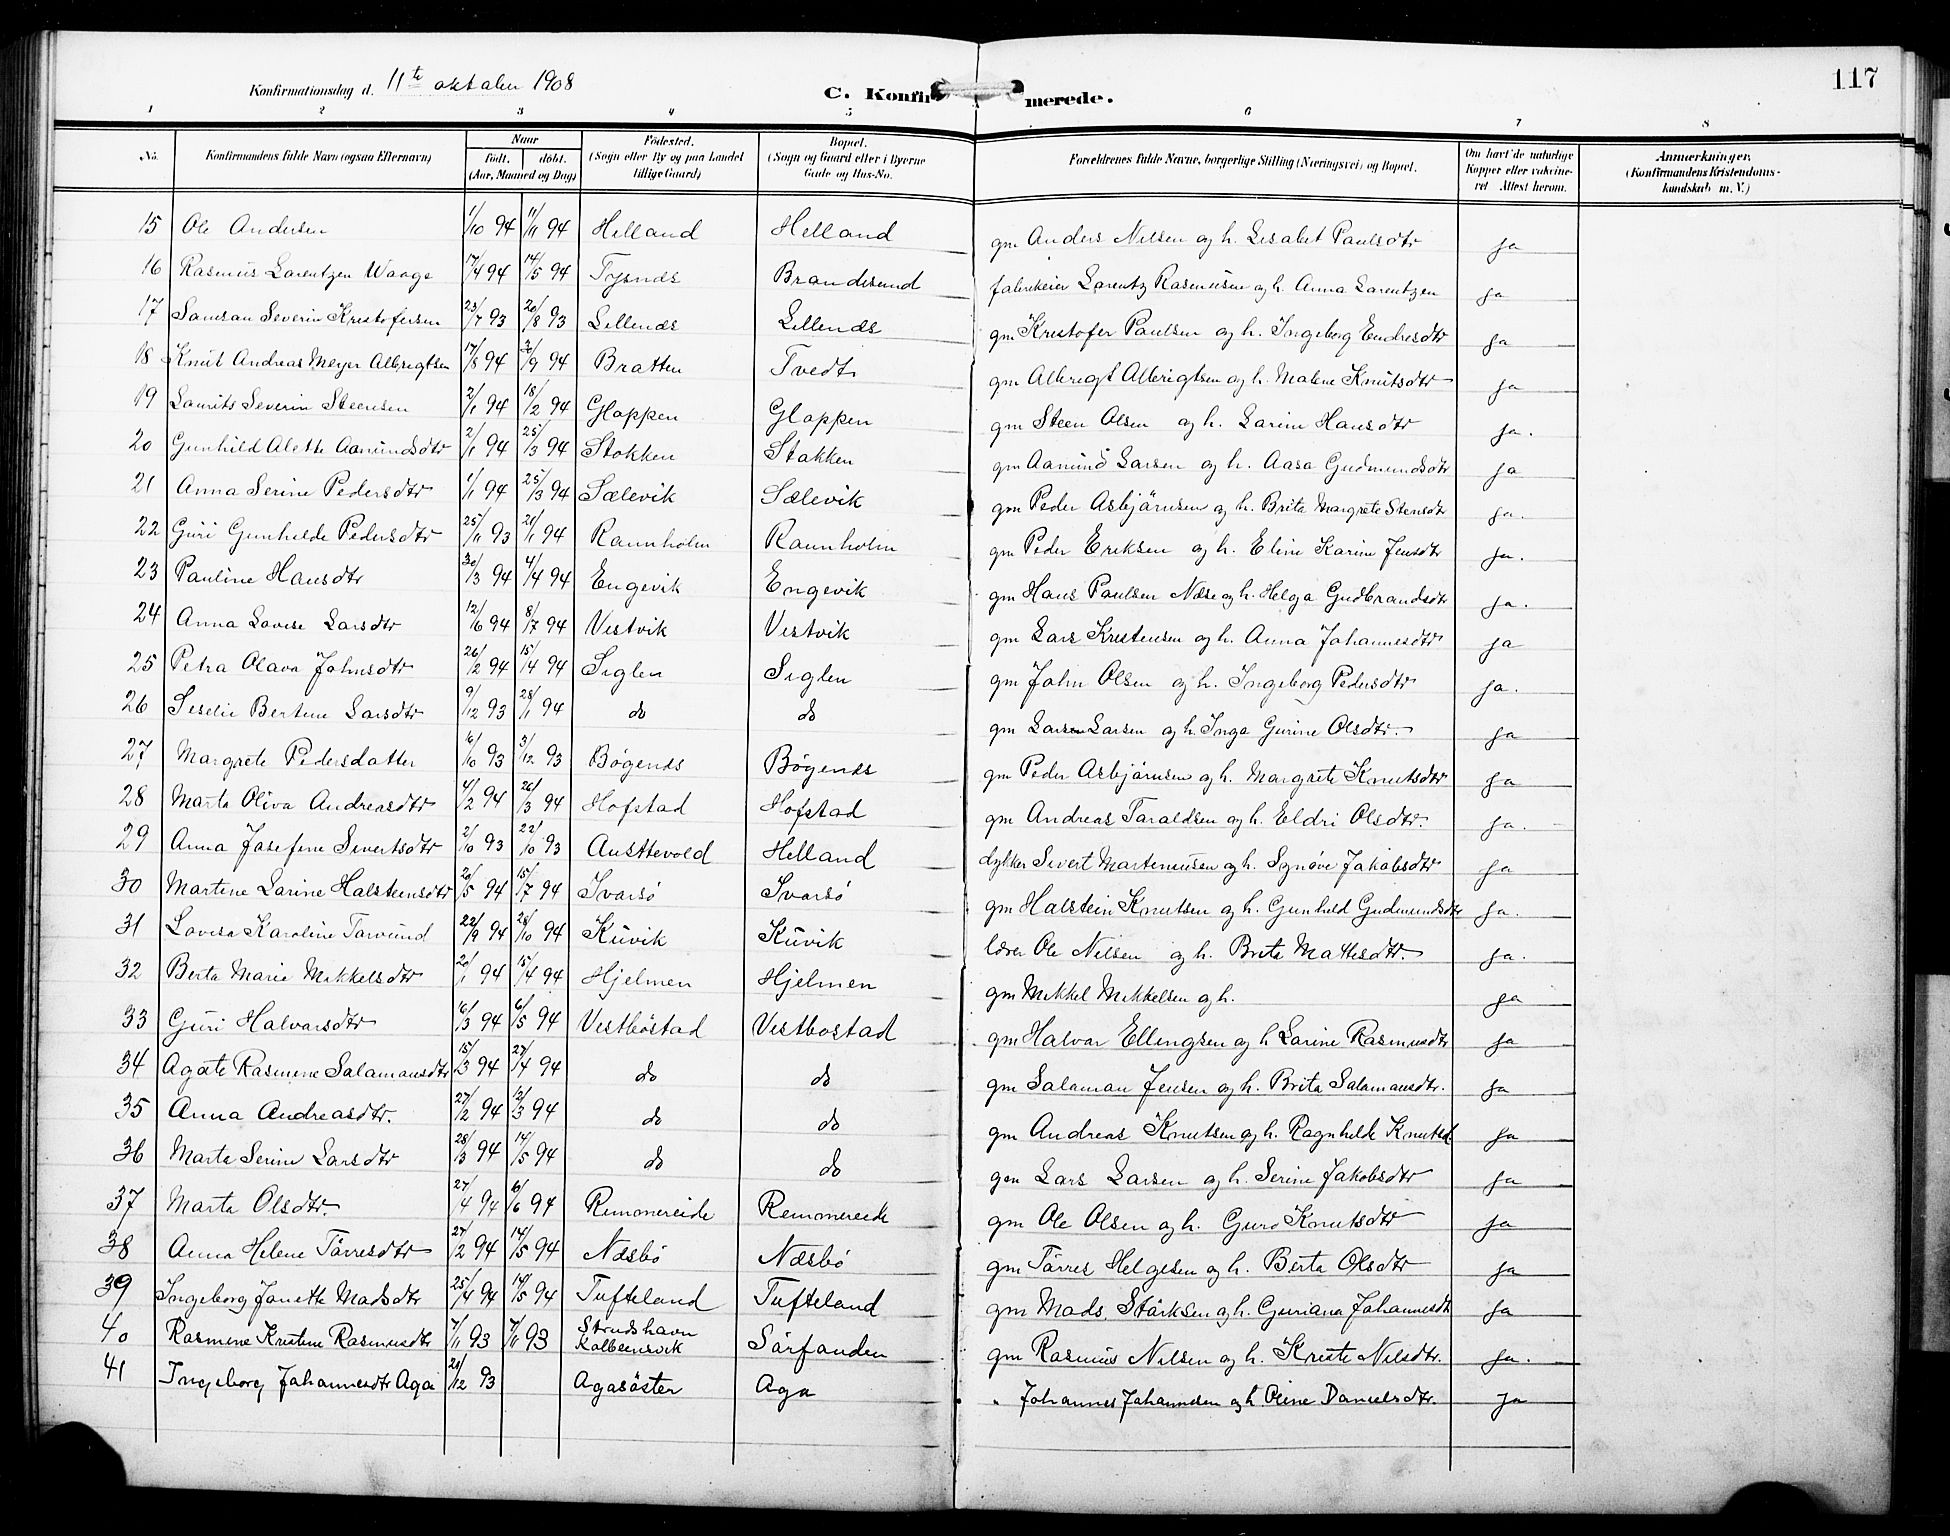 Konfirmationsdag d. 11te oktober 1908
C. Konfirmerede.
117
1 2 3 4 5 6 7 8
No. Konfirmandens fulde Navn (ogsaa Efternavn) Naar født. døbt. (Aar, Maaned og Dag) Fødested. (Sogn eller By og paa Landet tillige Gaard) Bopæl. (Sogn og Gaard eller i Byerne Gade og Hus-No. Forældrenes fulde Navne, borgerlige Stilling (Næringsvei) og Bopæl. Om havt de naturlige Kopper eller vaksineret Attest herom. Anmærkninger. (Konfirmandens Kristendomskundskab m. V.)
15 Ole Andersen 1/10 94 11/11 94 Helland Helland gm Anders Nilsen og h. Lisabet Paulsdtr ja
16 Rasmus Lorentzen Waage 17/4 94 14/5 94 Tysnes Brandesund fabrikeier Lorentz Rasmussen og h. Anna Lorentzen ja
17 Samson Severin Kristofersen 23/7 93 20/8 93 Lillenes Lillenes gm Kristofer Paulsen og h. Ingeborg Endresdtr ja
18 Knut Andreas Meyer Albrigtsen 17/8 94 30/9 94 Bratten Tvedt gm Albrigt Albrigtsen og h. Malene Knutsdtr ja
19 Laurits Severin Steensen 2/1 94 18/2 94 Gloppen Gloppen gm Steen Olsen og h. Larine Hansdtr ja.
20 Gunhild Alette Aamundsdtr 2/1 94 25/3 94 Stokken Stokken gm Aamund Larsen og h. Aasa Gudmundsdtr ja
21 Anna Serine Pedersdtr 1/1 94 25/3 94 Sælevik Sælevik gm Peder Asbjørnsen og h. Brita Margrete Stensdtr ja.
22 Guri Gunhilde Pedersdtr 25/11 93 21/1 94 Rannholm Rannholm gm Peder Eriksen og h. Eline Karine Jensdtr ja.
23 Pauline Hansdtr 30/3 94 4/4 94 Engevik Engevik gm Hans Paulsen Næse og h. Helga Gudbrandsdtr ja.
24 Anna Lovise Larsdtr 12/6 94 8/7 94 Vestvik Vestvik gm Lars Kristensen og h. Anna Johannesdtr ja
25 Petra Olava Johnsdtr 26/2 94 15/4 94 Siglen Siglen gm John Olsen og h. Ingeborg Pedersdtr ja.
26 Seselie Bertine Larsdtr 9/12 93 28/1 94 do do gm Larsen Larsen og h. Inga Gurine Olsdtr. ja
27 Margrete Pedersdatter 16/10 93 3/12 93 Bøgenes Bøgenes gm Peder Asbjørnsen og h. Margrete Knutsdtr ja
28 Marta Oliva Andreasdtr 4/2 94 26/3 94 Hofstad Hofstad gm Andreas Taraldsen og h. Eldri Olsdtr. ja.
29 Anna Josefine Sivertsdtr 2/10 93 22/10 93 Austevold Helland dykker Sivert Martenusen og h. Synøve Jakobsdtr ja
30 Martine Larine Halsteensdtr 20/5 94 15/7 94 Ivarsø Ivarsø gm Halstein Knutsen og h. Gunhild Gudmundsdtr ja.
31 Lovisa Karoline Tarvund 22/9 94 28/10 94 Kuvik Kuvik lærer Ole Nilsen og h. Brita Mattisdtr. ja.
32 Berta Marie Mikkelsdtr 20/1 94 15/4 94 Hjelmen Hjelmen gm Mikkel Mikkelsen og h. ja
33 Guri Halvorsdtr 16/3 94 6/5 94 Vestbøstad Vestbostad gm Halvor Ellingsen og h Larine Rasmusdtr ja
34 Agate Rasmine Salamonsdtr 15/3 94 27/4 94 do do gm Salamon Jensen og h. Brita Salamonsdtr. ja
35 Anna Andreasdtr. 27/2 94 12/3 94 do do gm Andreas Knutsen og h. Ragnhilde Knutsd ja
36 Marta Serine Larsdtr 28/3 94 14/5 94 do do gm Lars Larsen og h. Serine Jakobsdtr ja
37 Marta Olsdtr. 27/4 94 6/6 94 Remmereide Remmereide gm Ole Olsen og h. Guro Knutsdtr ja
38 Anna Helene Tørresdtr 27/2 94 14/5 94 Næsbø Næsbø gm Tørres Helgesen og h. Berta Olsdtr ja
39 Ingeborg Janette Madsdtr 25/4 94 14/5 94 Tufteland Tufteland gm Mads. Størksen og h. Guriana Johannesdt ja
40 Rasmine Kristine Rasmusdtr 7/11 93 7/11 93 Strudshavn Kolbeensvik Sørfonden gm Rasmus Nilsen og h. Kriste Nilsdtr. ja.
41 Ingeborg Johannesdtr Aga 20/12 93 Agasöster Aga " Johannes Johannesen og h Oline Danielsdtr. ja